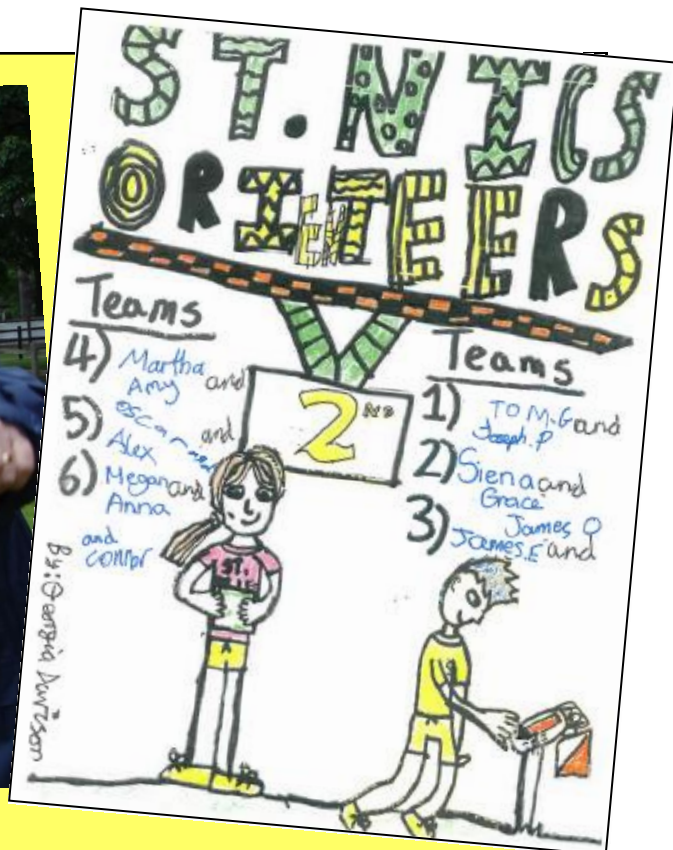 ST.NICS
ORIENTEERS
2ND
Teams
4) Martha and
Amy
5) oscar and
Alex
6) Megan and
Anna
and
connor
Teams
1) TOM.G and
Joseph.P
2) Siena and
Grace
James O
3) James.E and
ST.
By: Georgia Davison